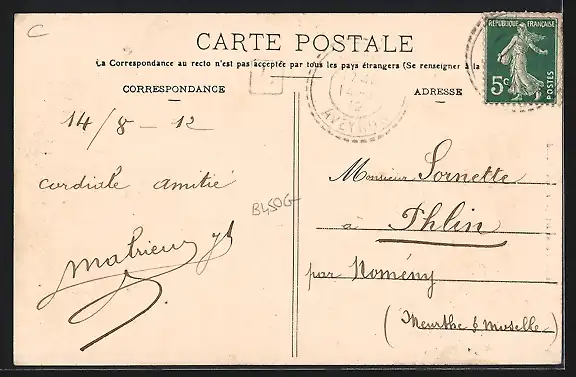 C
CARTE POSTALE
La Correspondance au recto n'est pas acceptée par tous les pays étrangers (Se renseigner à la
CORRESPONDANCE
ADRESSE
RÉPUBLIQUE FRANÇAISE
5c
POSTES
14
12
AVEYRON
14/8 - 12
cordiale amitié
B450G
Monsieur Sornette
à Phlin
par Nomény
(Meurthe & Moselle)